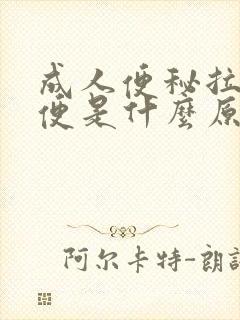 成人便秘拉
便是什麼原
阿尔卡特-朗